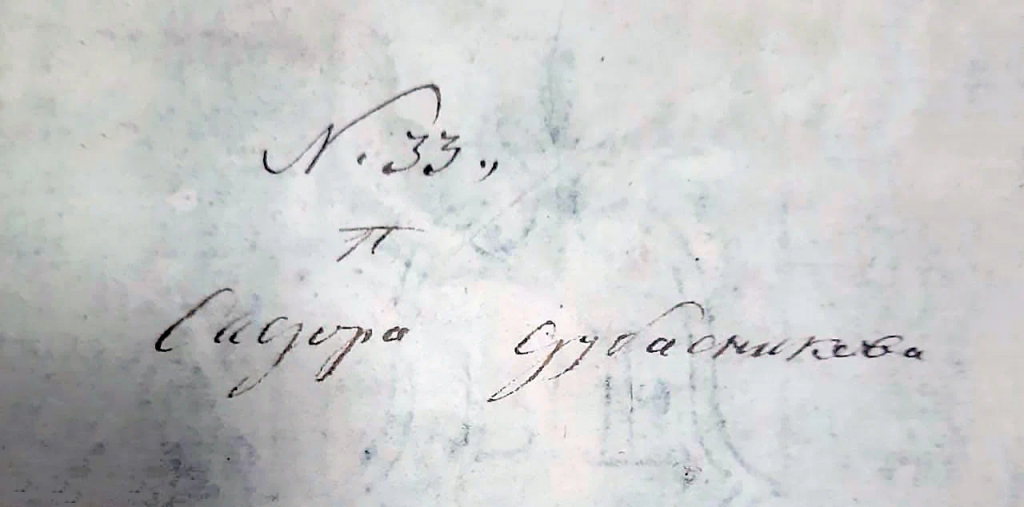 N. 33.,
П
Сидора Дубасникова